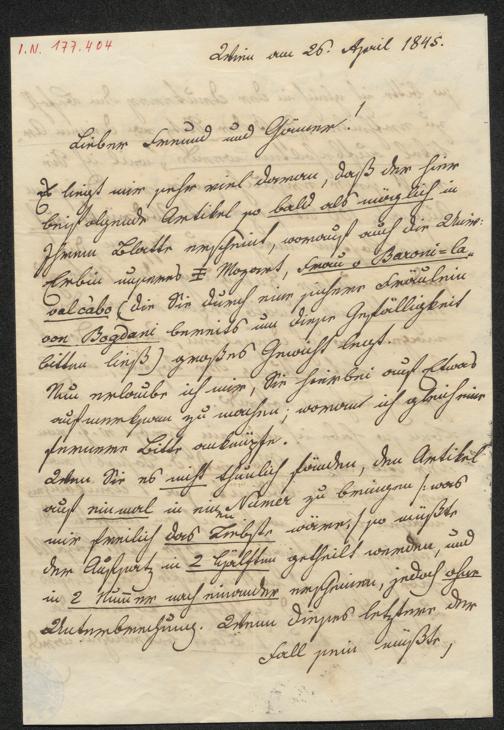 I.N. 177.404
Wien am 26. April 1845.
Lieber Freund und Gönner!
Es liegt mir sehr viel daran, daß der hier
beifolgende Artikel so bald als möglich in
Ihrem Blatte erscheint, worauf auch die Univ:
Erbin unseres Mozart, Frau v Baroni=la=
valcabo (die Sie durch eine sichere Fräulein
von Bogdani bereits um diese Gefälligkeit
bitten ließ) großes Gewicht legt.
Nun erlaube ich mir, Sie hierbei auf Etwas
aufmerksam zu machen; woran ich gleich eine
fernere Bitte anknüpfe.
Wenn Sie es nicht thunlich fänden, den Artikel
auf einmal in einer Numer zu bringen /: was
mir freilich das Liebste wäre, :/ so müßte
der Aufsatz in 2 Hälften getheilt werden, und
in 2 Numer nach einander erscheinen, jedoch ohne
Unterbrechung. Wenn dieses letztere der
Fall sein müßte,